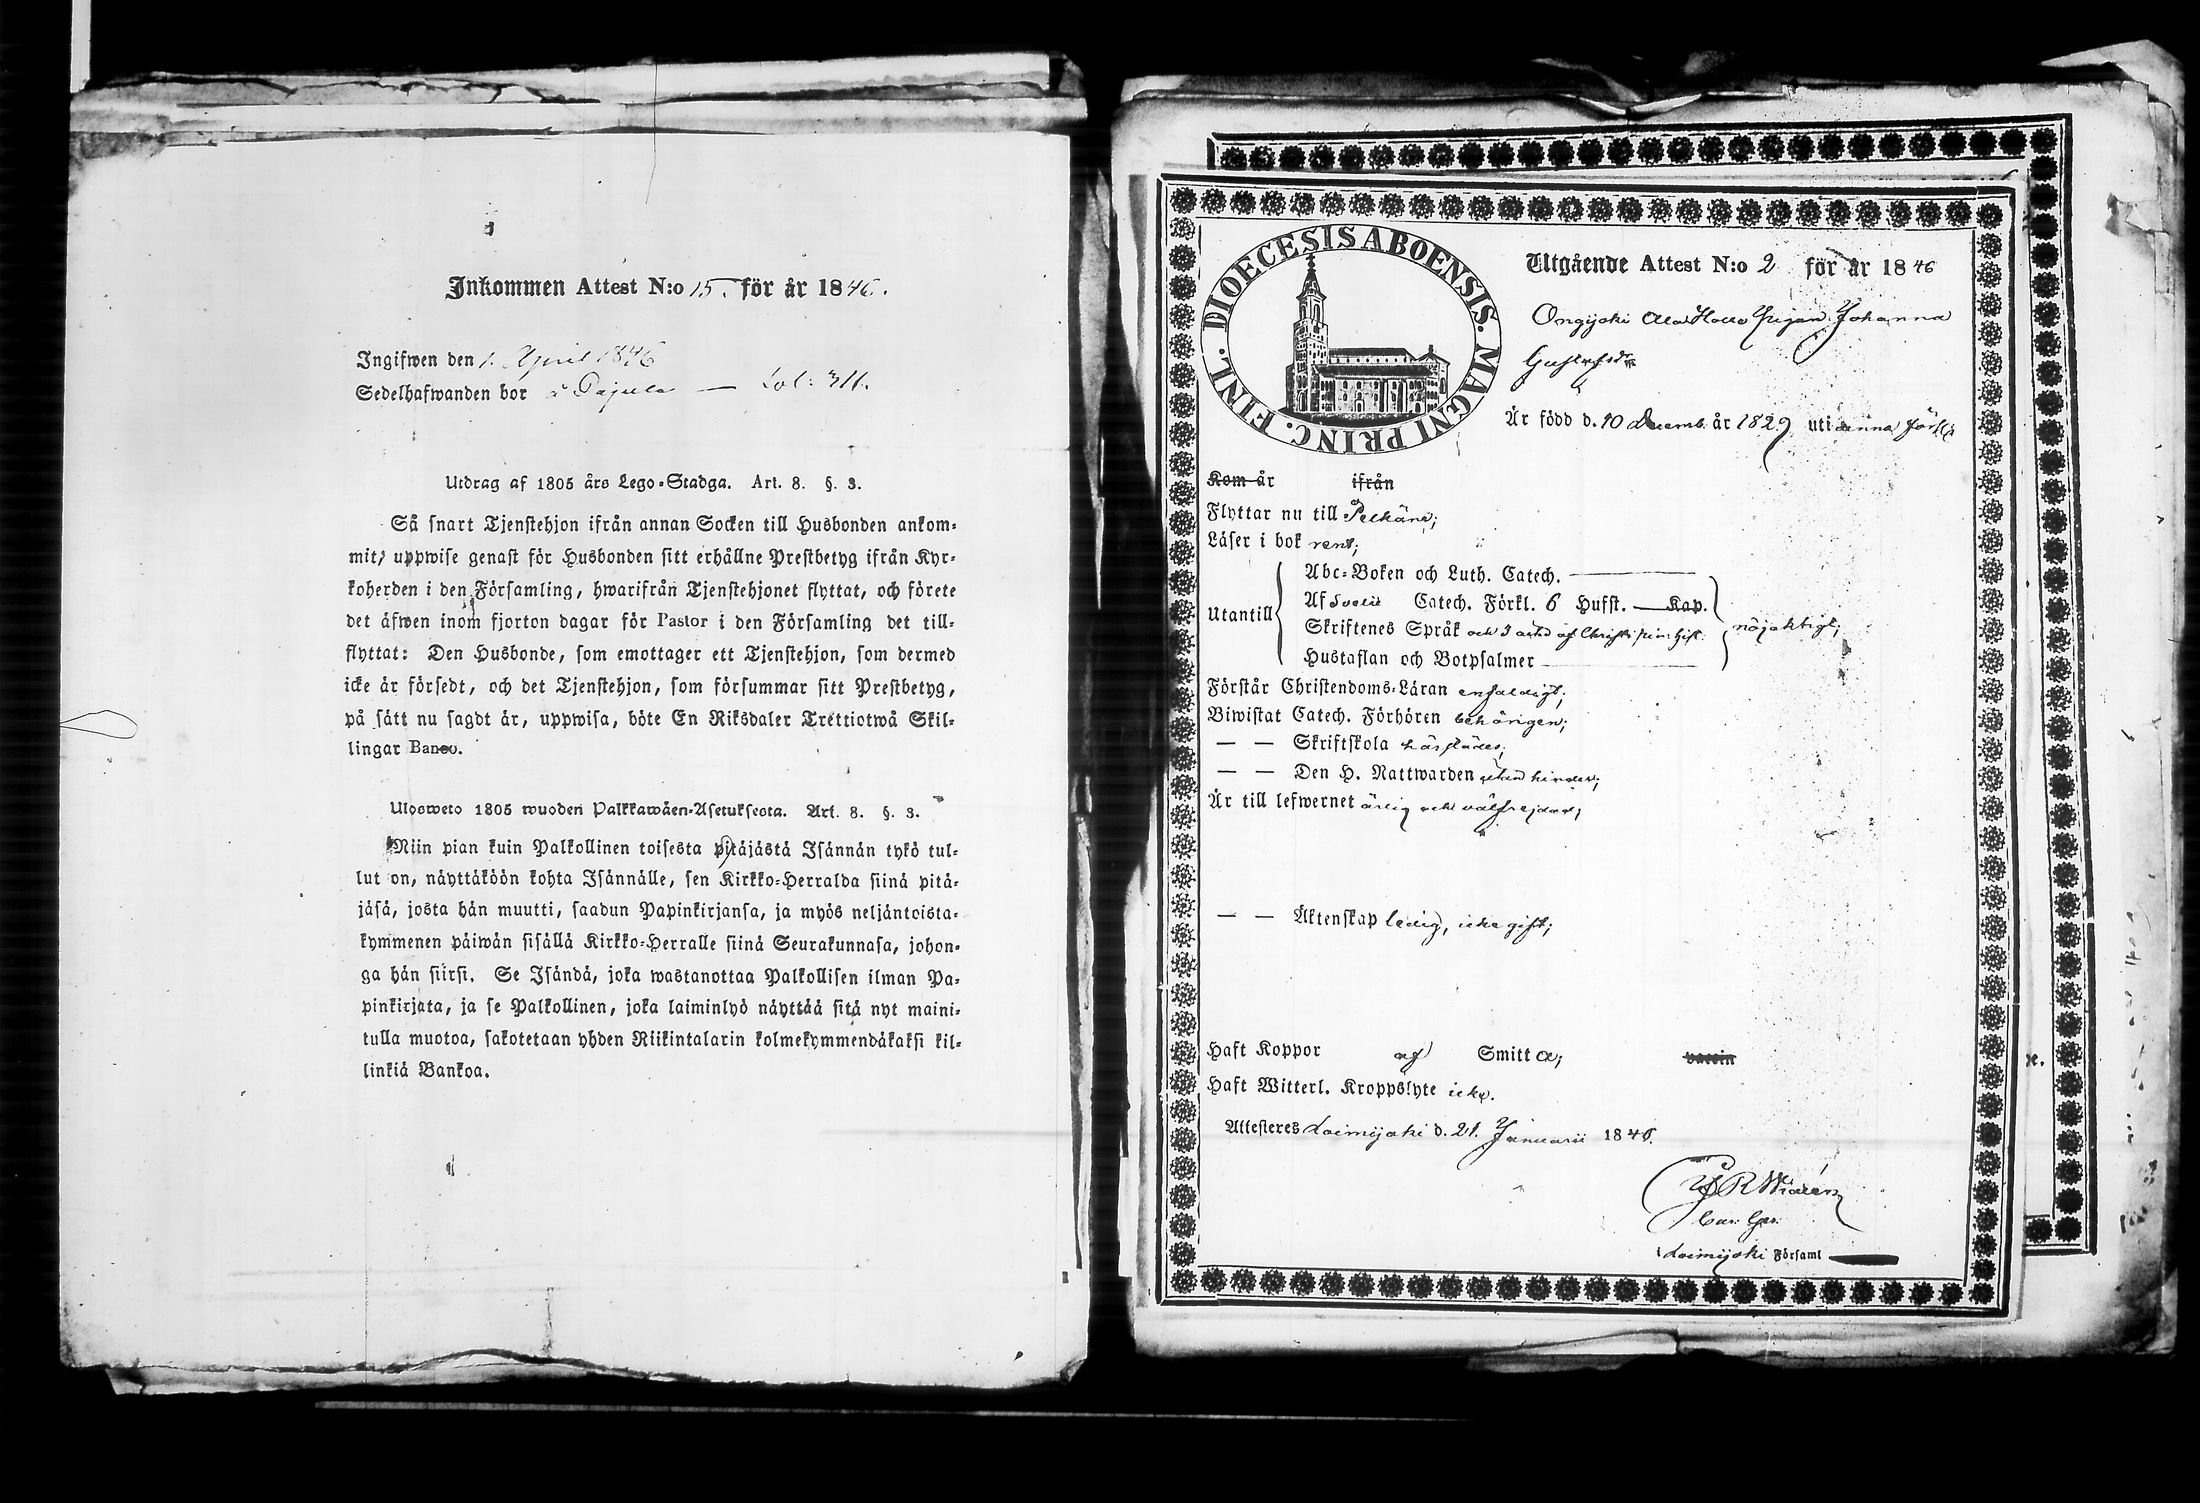 Inkommen Attest N:o 15. för år 1846.
Ingifwen den 1. April 1846
Sedelhafwanden bor å Pajula — Fol: 311.
Utdrag af 1805 års Lego-Stadga. Art. 8. §. 3.
Så snart Tjenstehjon ifrån annan Socken till Husbonden ankom-
mit, uppwise genast för Husbonden sitt erhållne Prestbetyg ifrån Kyr-
koherden i den Församling, hwarifrån Tjenstehjonet flyttat, och förete
det äfwen inom fjorton dagar för Pastor i den Församling det till-
flyttat: Den Husbonde, som emottager ett Tjenstehjon, som dermed
icke är försedt, och det Tjenstehjon, som försummar sitt Prestbetyg,
på sätt nu sagdt är, uppwisa, böte En Riksdaler Trettiotwå Skil-
lingar Banco.
Ulosweto 1805 wuoden Palkkawäen-Asetuksesta. Art. 8. §. 3.
Niin pian kuin Palkollinen toisesta pitäjästä Isännän tykö tul-
lut on, näyttäköön kohta Isännälle, sen Kirkko-Herralda siinä pitä-
jäsä, josta hän muutti, saadun Papinkirjansa, ja myös neljäntoista-
kymmenen päiwän sisällä Kirkko-Herralle siinä Seurakunnasa, johon-
ga hän siirsi. Se Isändä, joka wastanottaa Palkollisen ilman Pa-
pinkirjata, ja se Palkollinen, joka laiminlyö näyttää sitä nyt maini-
tulla muotoa, sakotetaan yhden Riikintalarin kolmekymmendäkaksi kil-
linkiä Bankoa.
DIOECESIS ABOENSIS. MAGNI PRINC. FINL.
Utgående Attest N:o 2 för år 1846
Ongijoki Pigan Johanna
Gustafsdr
Är född d. 10 Decemb. år 1829 uti denna förs:
Kom år ifrån
Flyttar nu till Pelkäne;
Läser i bok rent;
Abc-Boken och Luth. Catech. —
Utantill Af Svebil: Catech. Förkl. 6 Hufst. — Kap. nöjaktigt;
Skriftenes Språk och
Hustaflan och Botpsalmer —
Förstår Christendoms-Läran enfaldigt;
Biwistat Catech. Förhören behörigen;
— — Skriftskola härstädes;
— — Den H. Nattwarden utan hinder;
Är till lefwernet ärlig och välfrejdad;
— — Äktenskap ledig, icke gift;
Haft Koppor af Smitta; vaccin
Haft Witterl. Kroppslyte icke.
Attesteres Loimijoki d. 21. Januarii 1846.
Loimijoki Församl